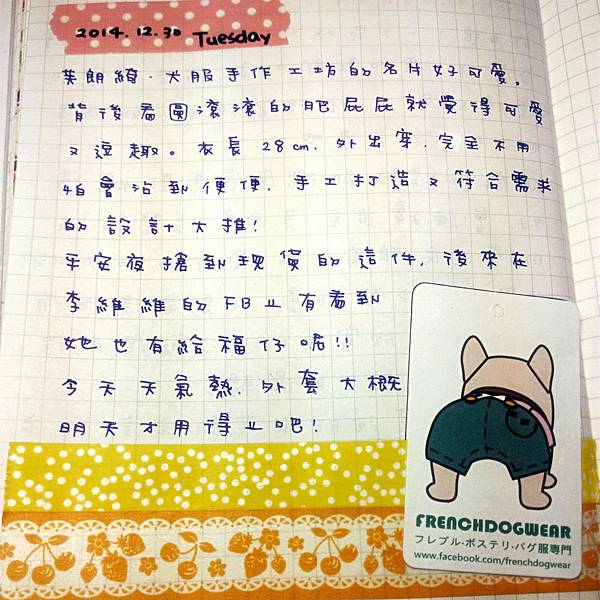 2014.12.30 Tuesday
英朗綺.犬服手作工坊的名片好可愛。
背後看圓滾滾的肥屁屁就覺得可愛
又逗趣。衣長28cm.外出穿.完全不用
怕會沾到便便.手工打造又符合需求
的設計大推!
平安夜搶到現貨的這件,後來在
李維維的FB上有看到
她也有給福仔唷!!
今天天氣熱.外套大概
明天才用得上吧!
FRENCHDOGWEAR
フレブル・ボステリ・パグ服専門
www.facebook.com/frenchdogwear